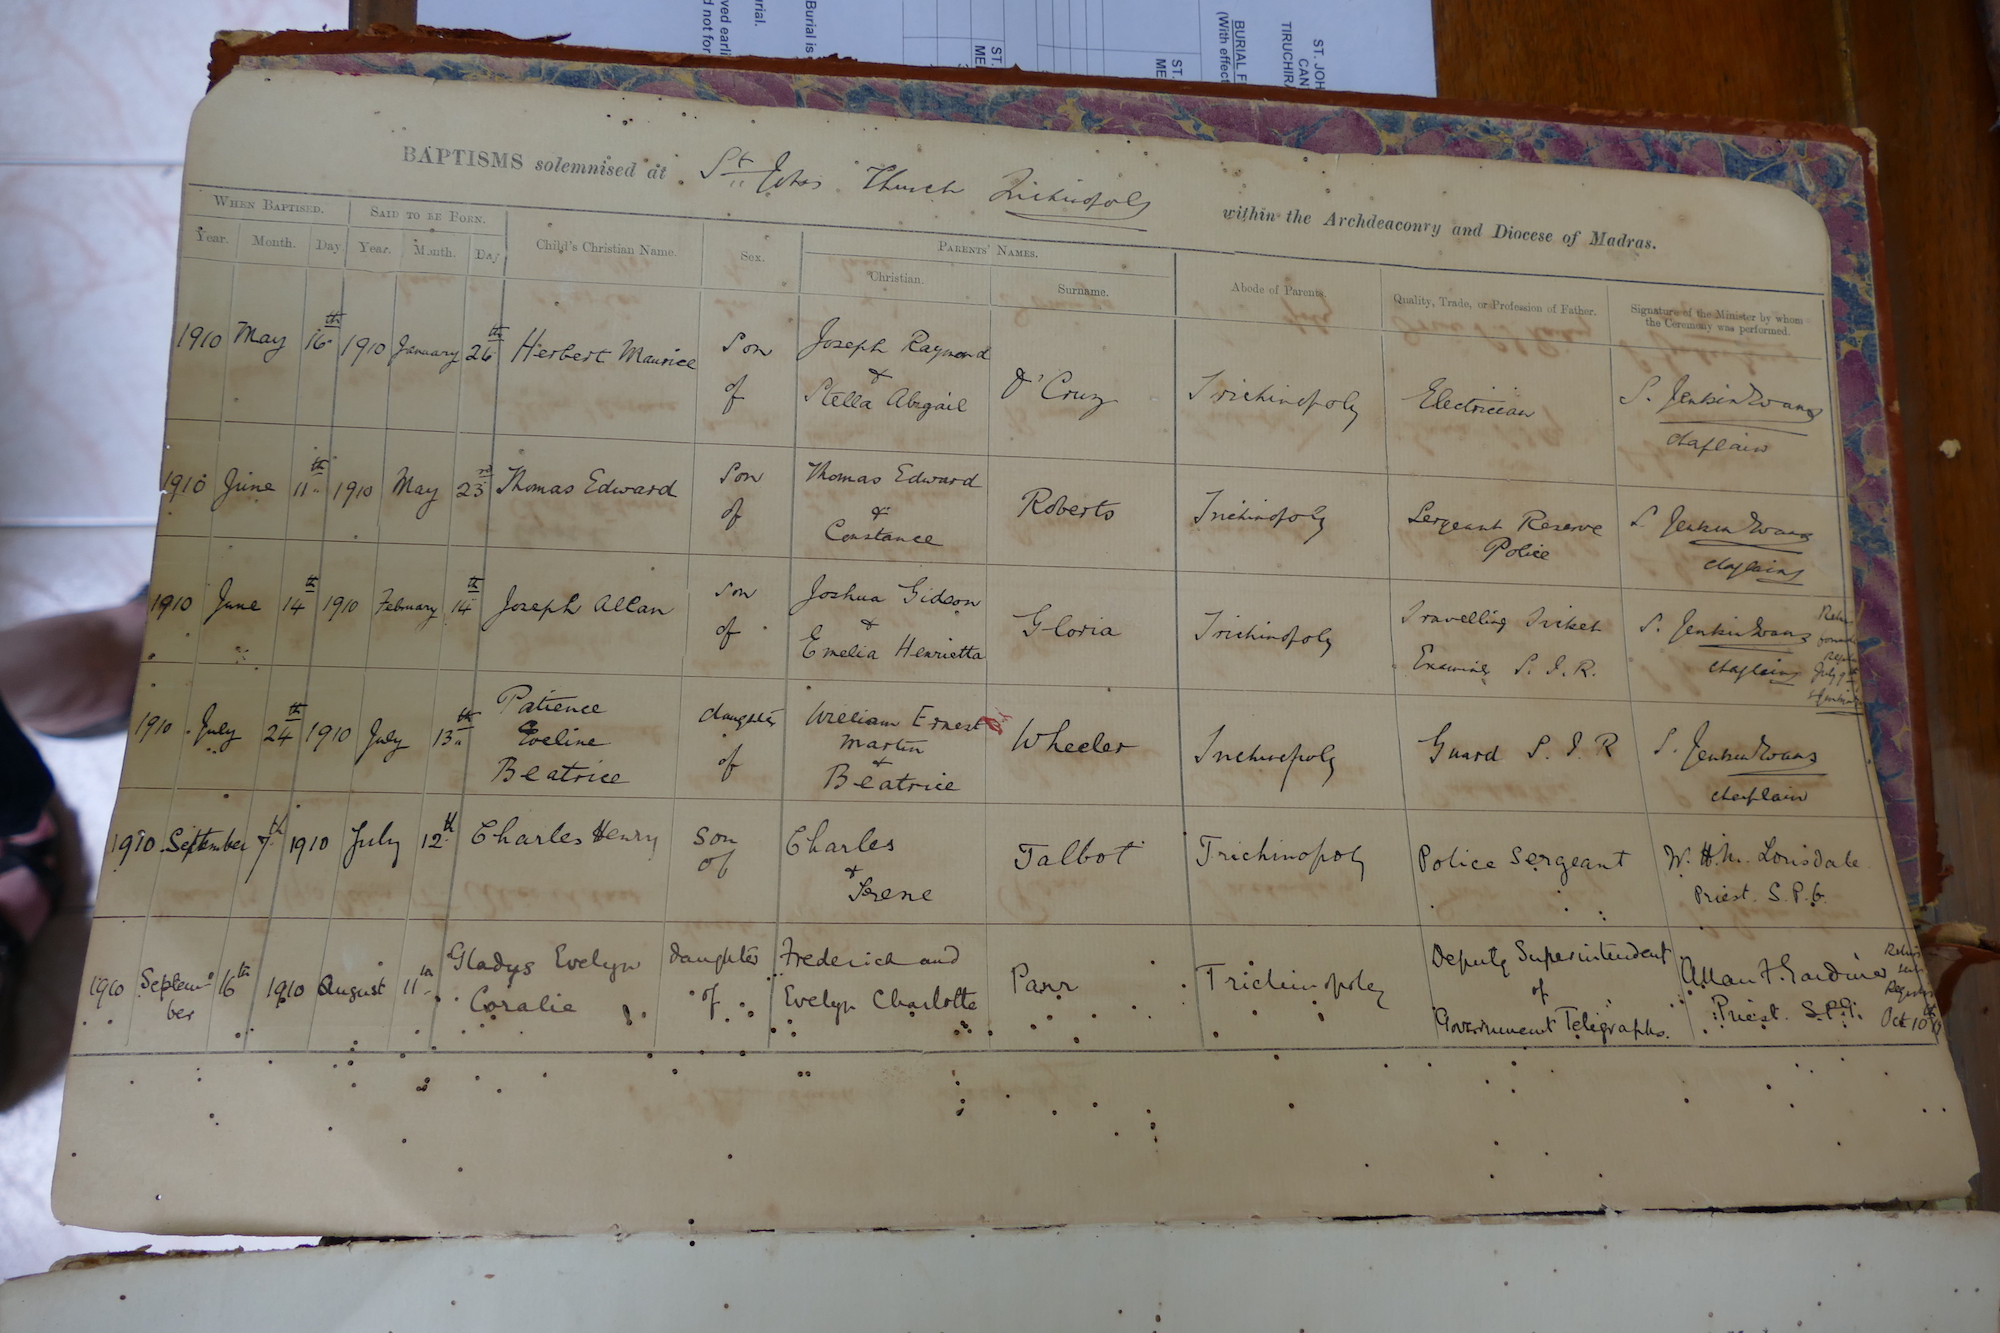 BAPTISMS solemnised at St. Johns Church Trichinopoly within the Archdeaconry and Diocese of Madras.
WHEN BAPTISED. SAID TO BE BORN. Child's Christian Name. Sex. PARENTS' NAMES. Abode of Parents. Quality, Trade, or Profession of Father. Signature of the Minister by whom the Ceremony was performed.
Year. Month. Day. Year. Month. Day Christian. Surname.
1910 May 16th 1910 January 26th Herbert Maurice Son of Joseph Raymond & Stella Abigail D'Cruz Trichinopoly Electrician S. Jenkin Evans chaplain
1910 June 11th 1910 May 23rd Thomas Edward Son of Thomas Edward & Constance Roberts Trichinopoly Sergeant Reserve Police S. Jenkin Evans chaplain
1910 June 14th 1910 February 14th Joseph Allan Son of Joshua Gideon & Emelia Henrietta Gloria Trichinopoly Travelling Ticket Examiner S. I. R. S. Jenkin Evans chaplain
July
1910 July 24th 1910 July 13th Patience Eveline Beatrice daughter of William Ernest Martin & Beatrice Wheeler Trichinopoly Guard S. I. R S. Jenkin Evans chaplain
1910 September 7th 1910 July 12th Charles Henry Son of Charles & Irene Talbot Trichinopoly Police Sergeant W. H. M. Lonsdale Priest. S.P.G.
1910 September 16th 1910 August 11th Gladys Evelyn Coralie daughter of Frederick and Evelyn Charlotte Parr Trichinopoly Deputy Superintendent of Government Telegraphs. Allan F. Gardiner Priest. S.P.G.
Oct 10th
ST. JOH
CAN
TIRUCHIR
BURIAL F
(With effect
ST.
ME
ST.
ME
Burial is
rial.
ved earli
d not for